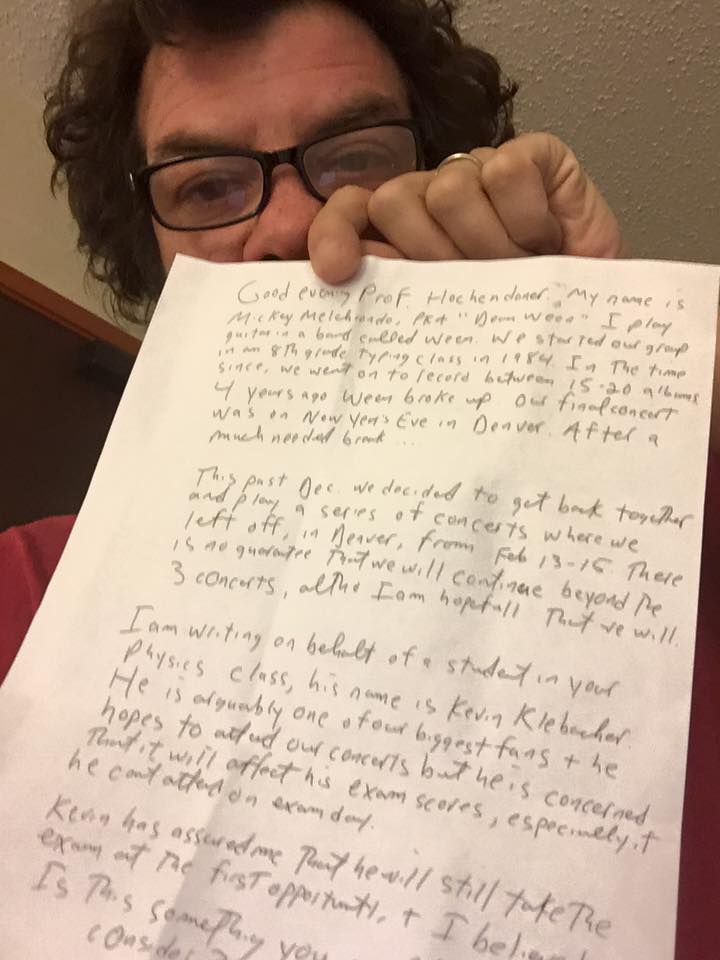 Good evening Prof. Hochendoner. My name is
Mickey Melchiondo, AKA "Dean Ween" I play
guitar in a band called Ween. We started our group
in an 8th grade typing class in 1984. In The time
since, we went on to record between 15-20 albums
4 years ago Ween broke up. Our final concert
was on New Year's Eve in Denver. After a
much needed break...
This past Dec. we decided to get back together
and play a series of concerts where we
left off, in Denver, from Feb 13-15. There
is no guarantee That we will continue beyond The
3 concerts, altho I am hopefull That we will.
I am writing on behalf of a student in your
Physics class, his name is Kevin Klebacher.
He is arguably one of our biggest fans + he
hopes to attend our concerts but he is concerned
That it will affect his exam scores, especially if
he cant attend on exam day.
Kevin has assured me That he will still take The
exam at The first opportunity, + I believe
Is This something you